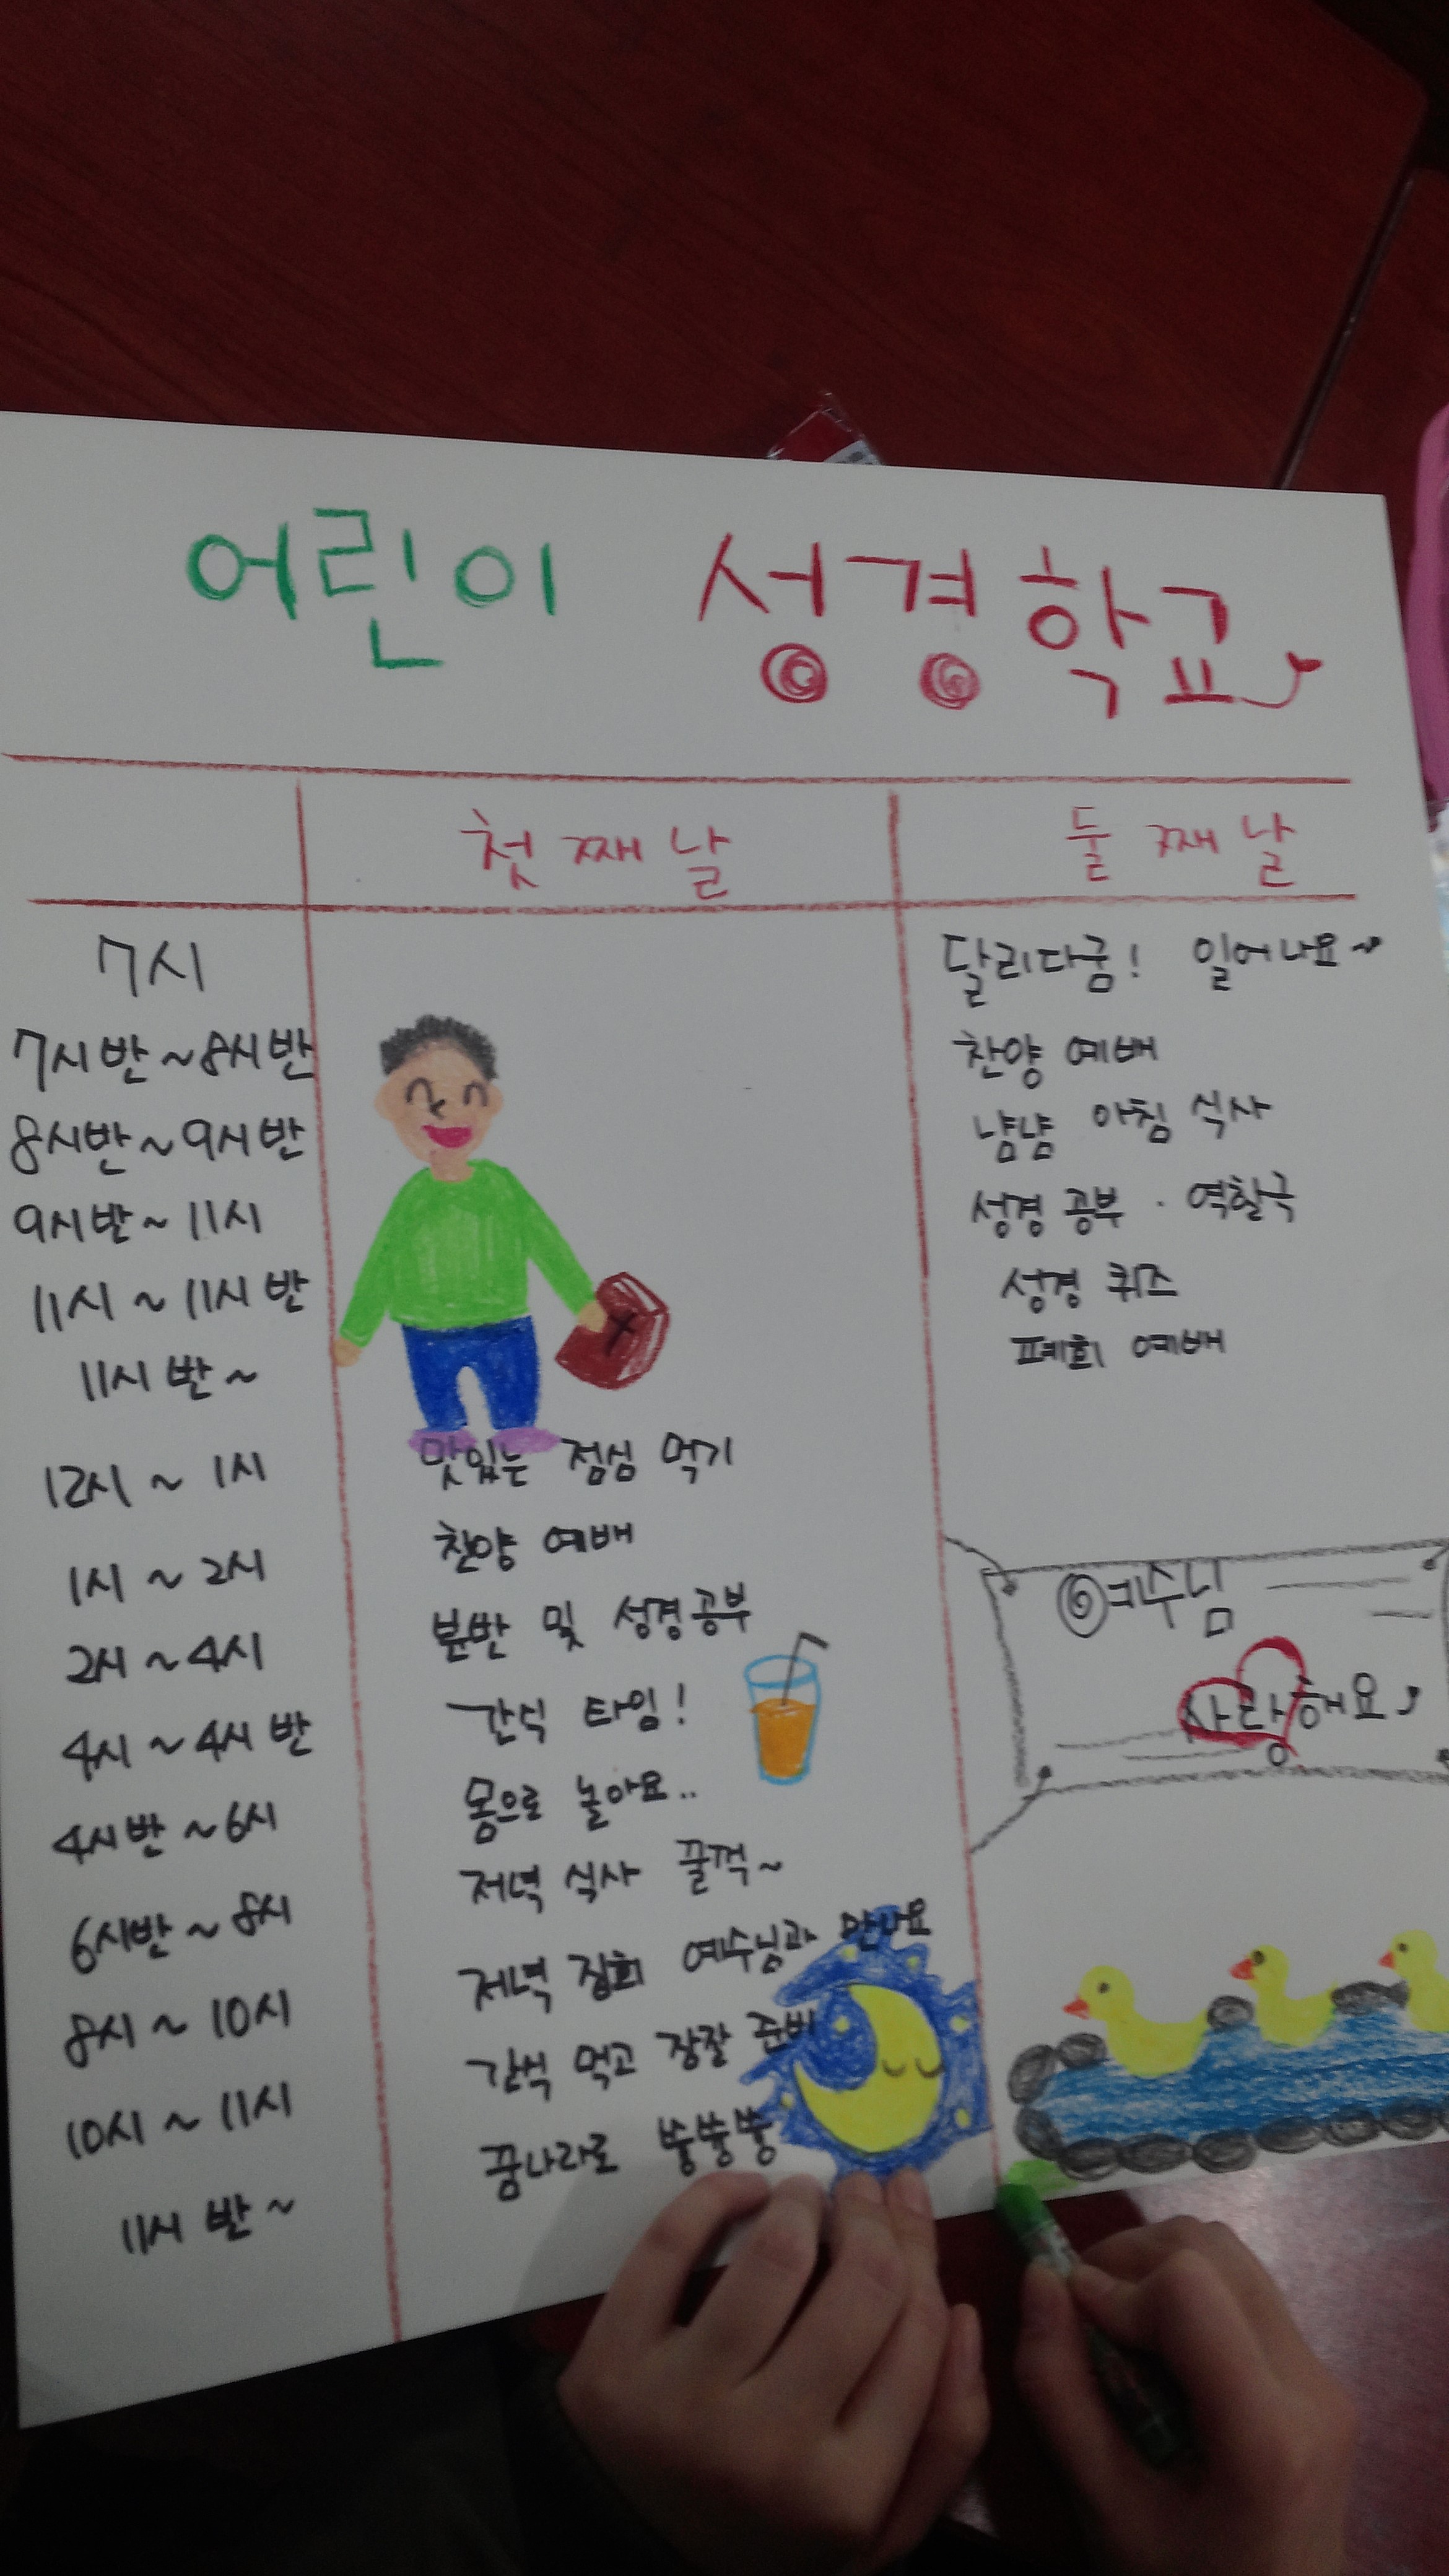 어린이 성경학교
첫째날 둘째날
7시 달리다굼! 일어나요~
7시반~8시반 찬양 예배
8시반~9시반 냠냠 아침 식사
9시반~11시 성경 공부 · 역할극
11시~11시반 성경 퀴즈
11시반~ 폐회 예배
12시~1시 맛있는 점심 먹기
1시~2시 찬양 예배
2시~4시 분반 및 성경공부
4시~4시반 간식 타임!
4시반~6시 몸으로 놀아요..
6시반~8시 저녁 식사 꿀꺽~
8시~10시 저녁 집회 예수님과 만나요
10시~11시 간식 먹고 잠잘 준비
11시반~ 꿈나라로 쑹쑹쑹
예수님
사랑해요